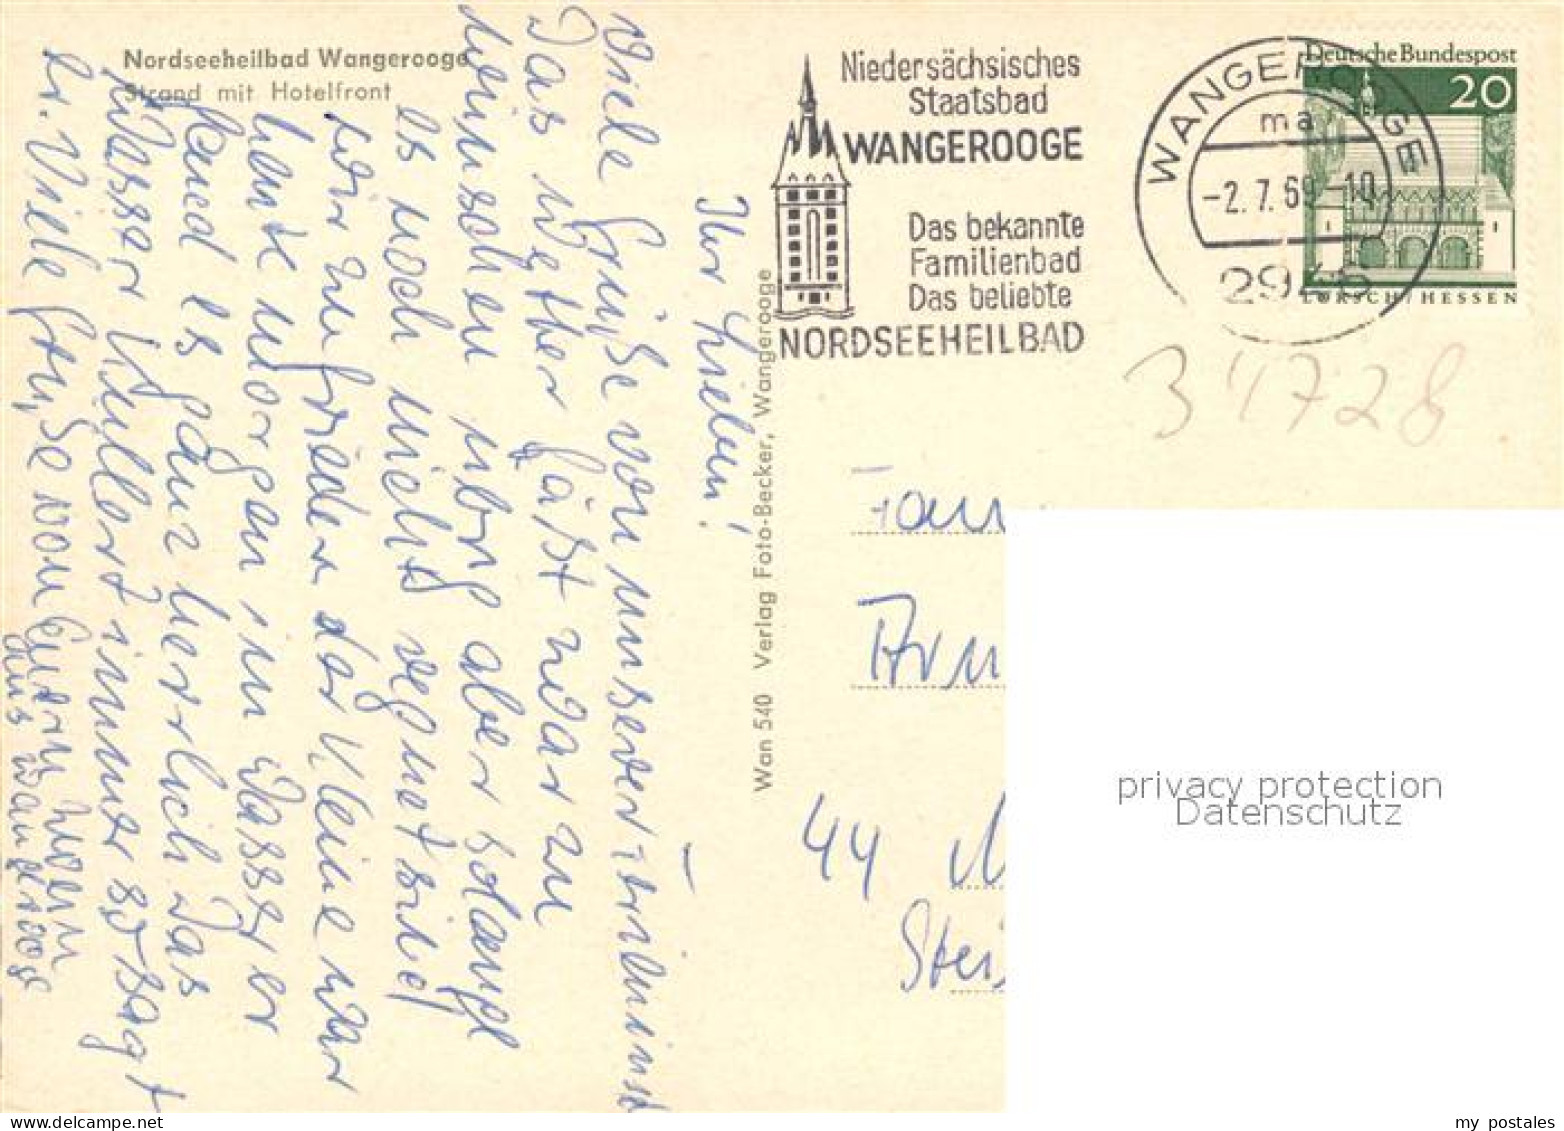 Nordseeheilbad Wangerooge
Strand mit Hotelfront
Niedersächsisches
Staatsbad
WANGEROOGE
Das bekannte
Familienbad
Das beliebte
NORDSEEHEILBAD
WANGEROOGE
ma
-2.7.69-10
2946
Deutsche Bundespost
20
LORSCH / HESSEN
31728
Wan 540 Verlag Foto-Becker, Wangerooge
Ihr Lieben!
Viele Grüße von unserer
Das Wetter läßt zwar zu
wünschen übrig aber solange
es noch nicht regnet sind
wir zufrieden der Kleine war
heute morgen im Wasser er
fand es ganz herrlich das
Wasser kullert immer so sagt
er. Viele Grüße von Euern
aus Wangerooge
Fam
44
privacy protection
Datenschutz
my postales